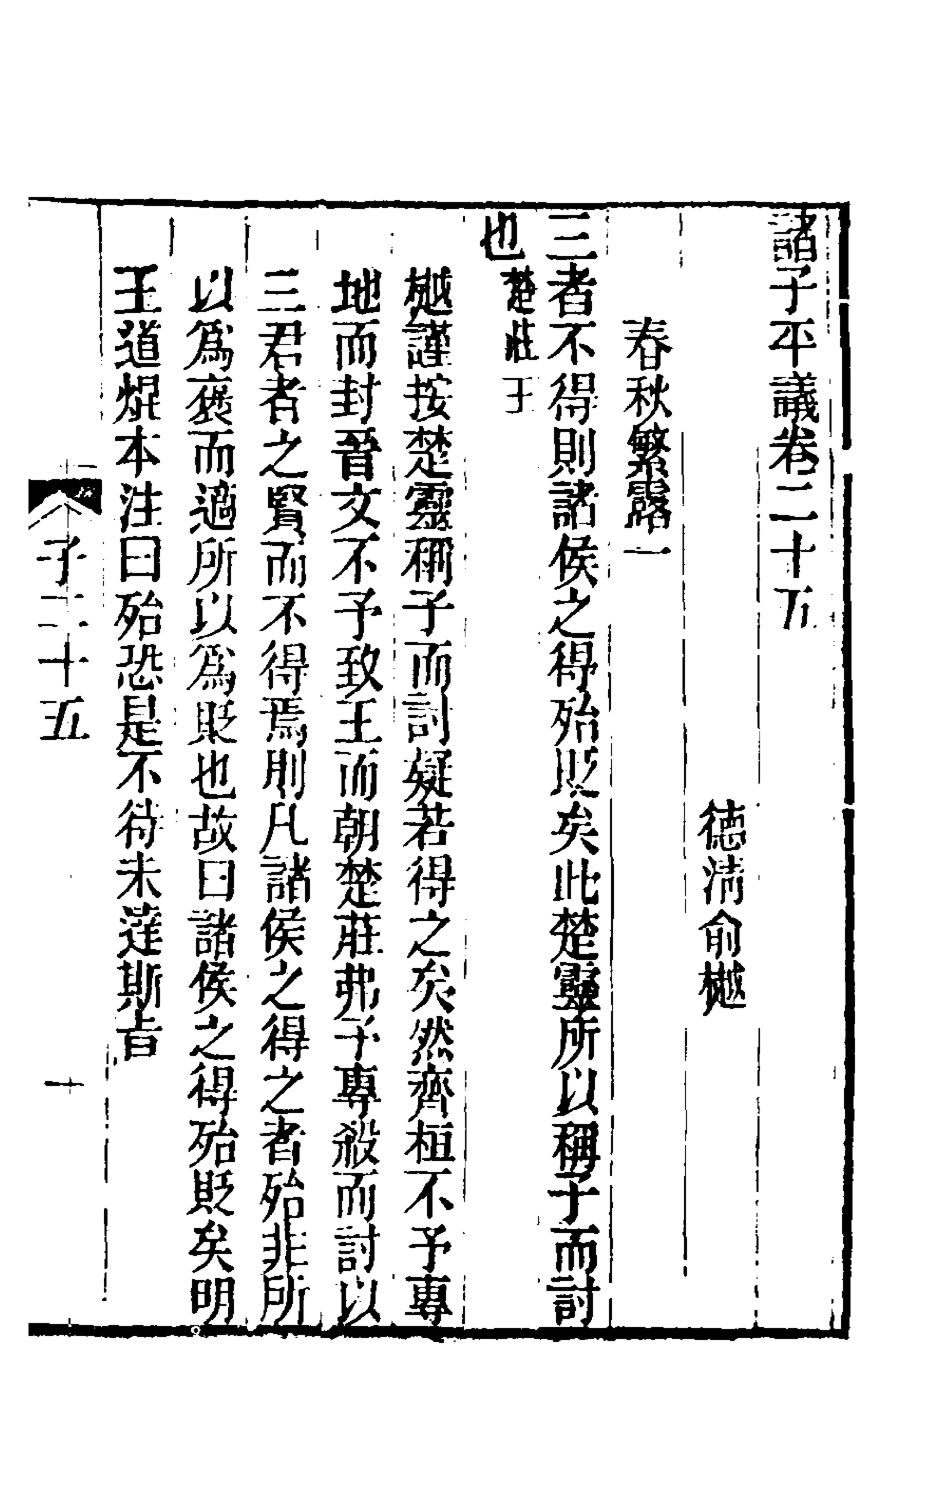 諸子平議卷二十五
德淸俞樾
春秋繁露一
三者不得則諸侯之得殆貶矣此楚靈所以稱子而討
也楚莊王
樾謹按楚靈稱子而討疑若得之矣然齊桓不予專
地而封晉文不予致王而朝楚莊弗予專殺而討以
三君者之賢而不得焉則凡諸侯之得之者殆非所
以爲褒而適所以爲貶也故曰諸侯之得殆貶矣明
王道焜本注曰殆恐是不待未達斯旨
子二十五
一